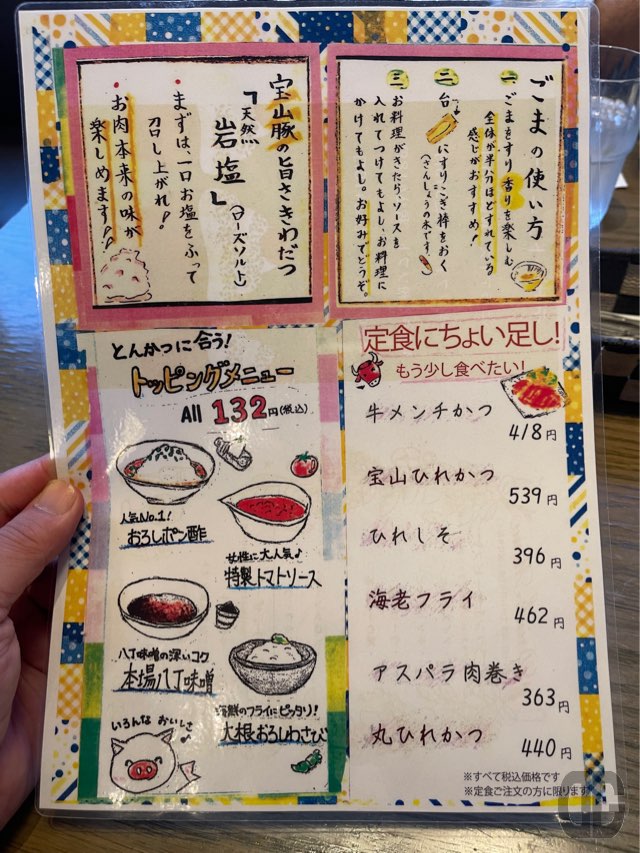 ごまの使い方
一 ごまをすり香りを楽しむ
全体が半分ほどすれている
感じがおすすめ!
二 台にすりこぎ棒をおく
(さんしょうの木です)
三 お料理がきたら、ソースを
入れてつけてもよし、お料理に
かけてもよし。お好みでどうぞ。
宝山豚の旨さきわだつ
「天然岩塩」(ローズソルト)
・まずは、一口お塩をふって
召し上がれ!
・お肉本来の味が
楽しめます!!
とんかつに合う!
トッピングメニュー
All 132円(税込)
人気No.1!
おろしポン酢
女性に大人気♪
特製トマトソース
八丁味噌の深いコク
本場八丁味噌
海鮮のフライにピッタリ!
大根おろしわさび
いろんなおいしさ♪
定食にちょい足し!
もう少し食べたい!
牛メンチかつ
418円
宝山ひれかつ
539円
ひれしそ
396円
海老フライ
462円
アスパラ肉巻き
363円
丸ひれかつ
440円
※すべて税込価格です
※定食ご注文の方に限ります